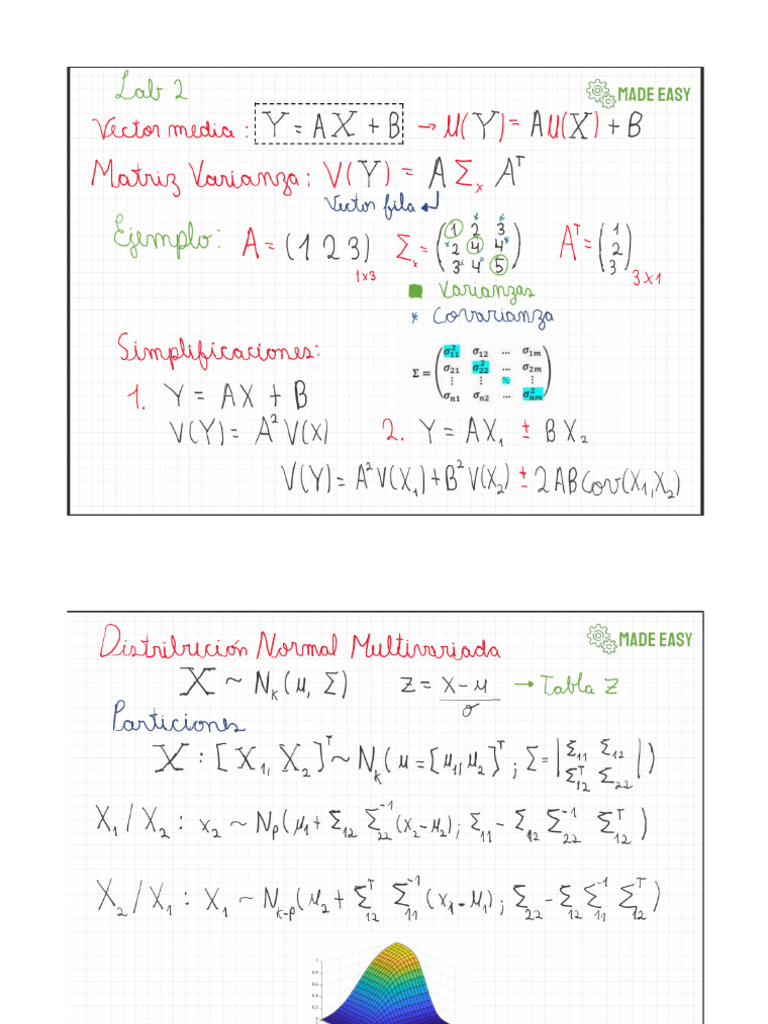 Lab 2
MADE EASY
Vector media: Y = AX + B → μ(Y) = Aμ(X) + B
Matriz Varianza: V(Y) = A Σₓ Aᵀ
Vector fila ↵
Ejemplo: A = (1 2 3) 1x3 Σₓ = (1 2* 3* ; *2 4 4* ; 3* 4* 5) Aᵀ = (1 ; 2 ; 3) 3x1
■ Varianzas
* Covarianza
Simplificaciones:
Σ = (σ²₁₁ σ₁₂ … σ₁ₘ ; σ₂₁ σ²₂₂ … σ₂ₘ ; ⋮ ⋮ ⋱ ⋮ ; σₙ₁ σₙ₂ … σ²ₙₘ)
1. Y = AX + B
V(Y) = A² V(X)
2. Y = AX₁ ± BX₂
V(Y) = A²V(X₁) + B²V(X₂) ± 2ABCov(X₁,X₂)
Distribución Normal Multivariada
MADE EASY
X ~ Nₖ(μ, Σ) Z = (X-μ)/σ → Tabla Z
Particiones
X : [X₁, X₂]ᵀ ~ Nₖ(μ = [μ₁, μ₂]ᵀ ; Σ = |Σ₁₁ Σ₁₂ ; Σᵀ₁₂ Σ₂₂|)
X₁/X₂ : x₂ ~ Nₚ(μ₁ + Σ₁₂ Σ₂₂⁻¹ (x₂-μ₂) ; Σ₁₁ - Σ₁₂ Σ₂₂⁻¹ Σᵀ₁₂)
X₂/X₁ : X₁ ~ Nₖ₋ₚ(μ₂ + Σᵀ₁₂ Σ₁₁⁻¹ (x₁-μ₁) ; Σ₂₂ - Σ₁₂ Σ₁₁⁻¹ Σᵀ₁₂)
1
0.8
0.6
0.4
0.2
0